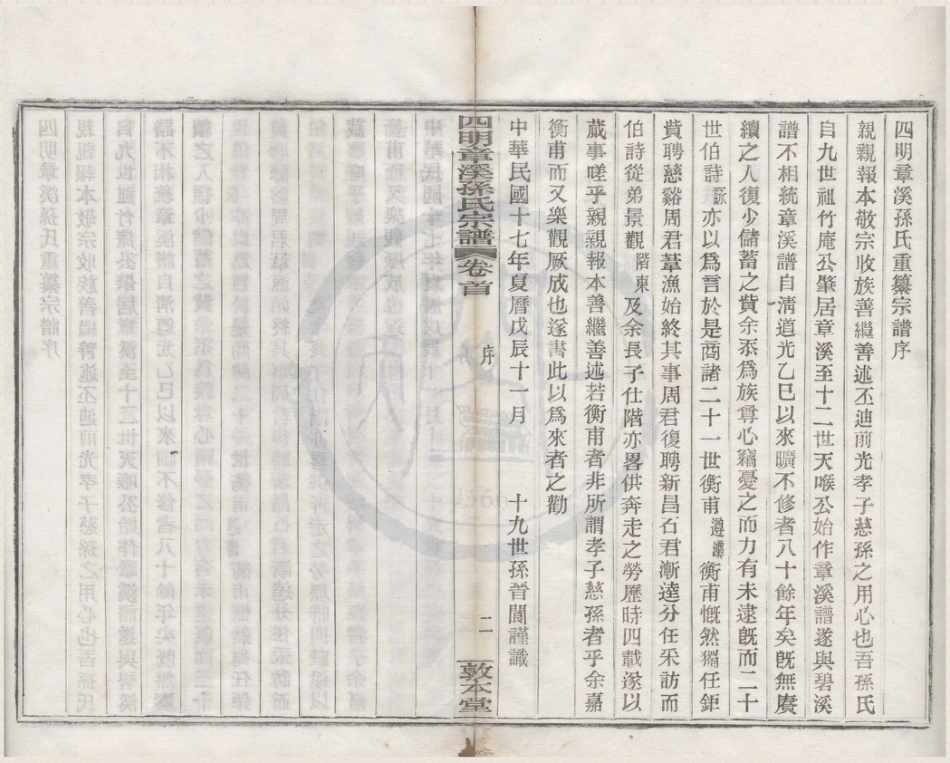 四明章溪孫氏重纂宗譜序
親親報本敬宗收族善繼善述丕迪前光孝子慈孫之用心也吾孫氏
自九世祖竹庵公肇居章溪至十二世天喚公始作章溪譜遂與碧溪
譜不相統章溪譜自淸道光乙巳以來曠不修者八十餘年矣旣無賡
續之人復少儲蓄之貲余忝爲族尊心竊憂之而力有未逮旣而二十
世伯詩詠亦以爲言於是商諸二十一世衡甫遵灋衡甫慨然獨任鉅
貲聘慈谿周君葦漁始終其事周君復聘新昌石君漸逵分任采訪而
伯詩從弟景觀階東及余長子仕階亦畧供奔走之勞歷時四載遂以
蕆事嗟乎親親報本善繼善述若衡甫者非所謂孝子慈孫者乎余嘉
衡甫而又樂觀厥成也遂書此以爲來者之勸
中華民國十七年夏曆戊辰十一月 十九世孫首閬謹識
四明章溪孫氏宗譜 卷首 序 二 敦本堂